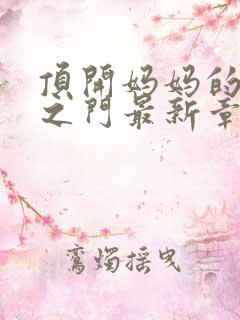 頂開妈妈的
之门最新章
鸾烛摇曳